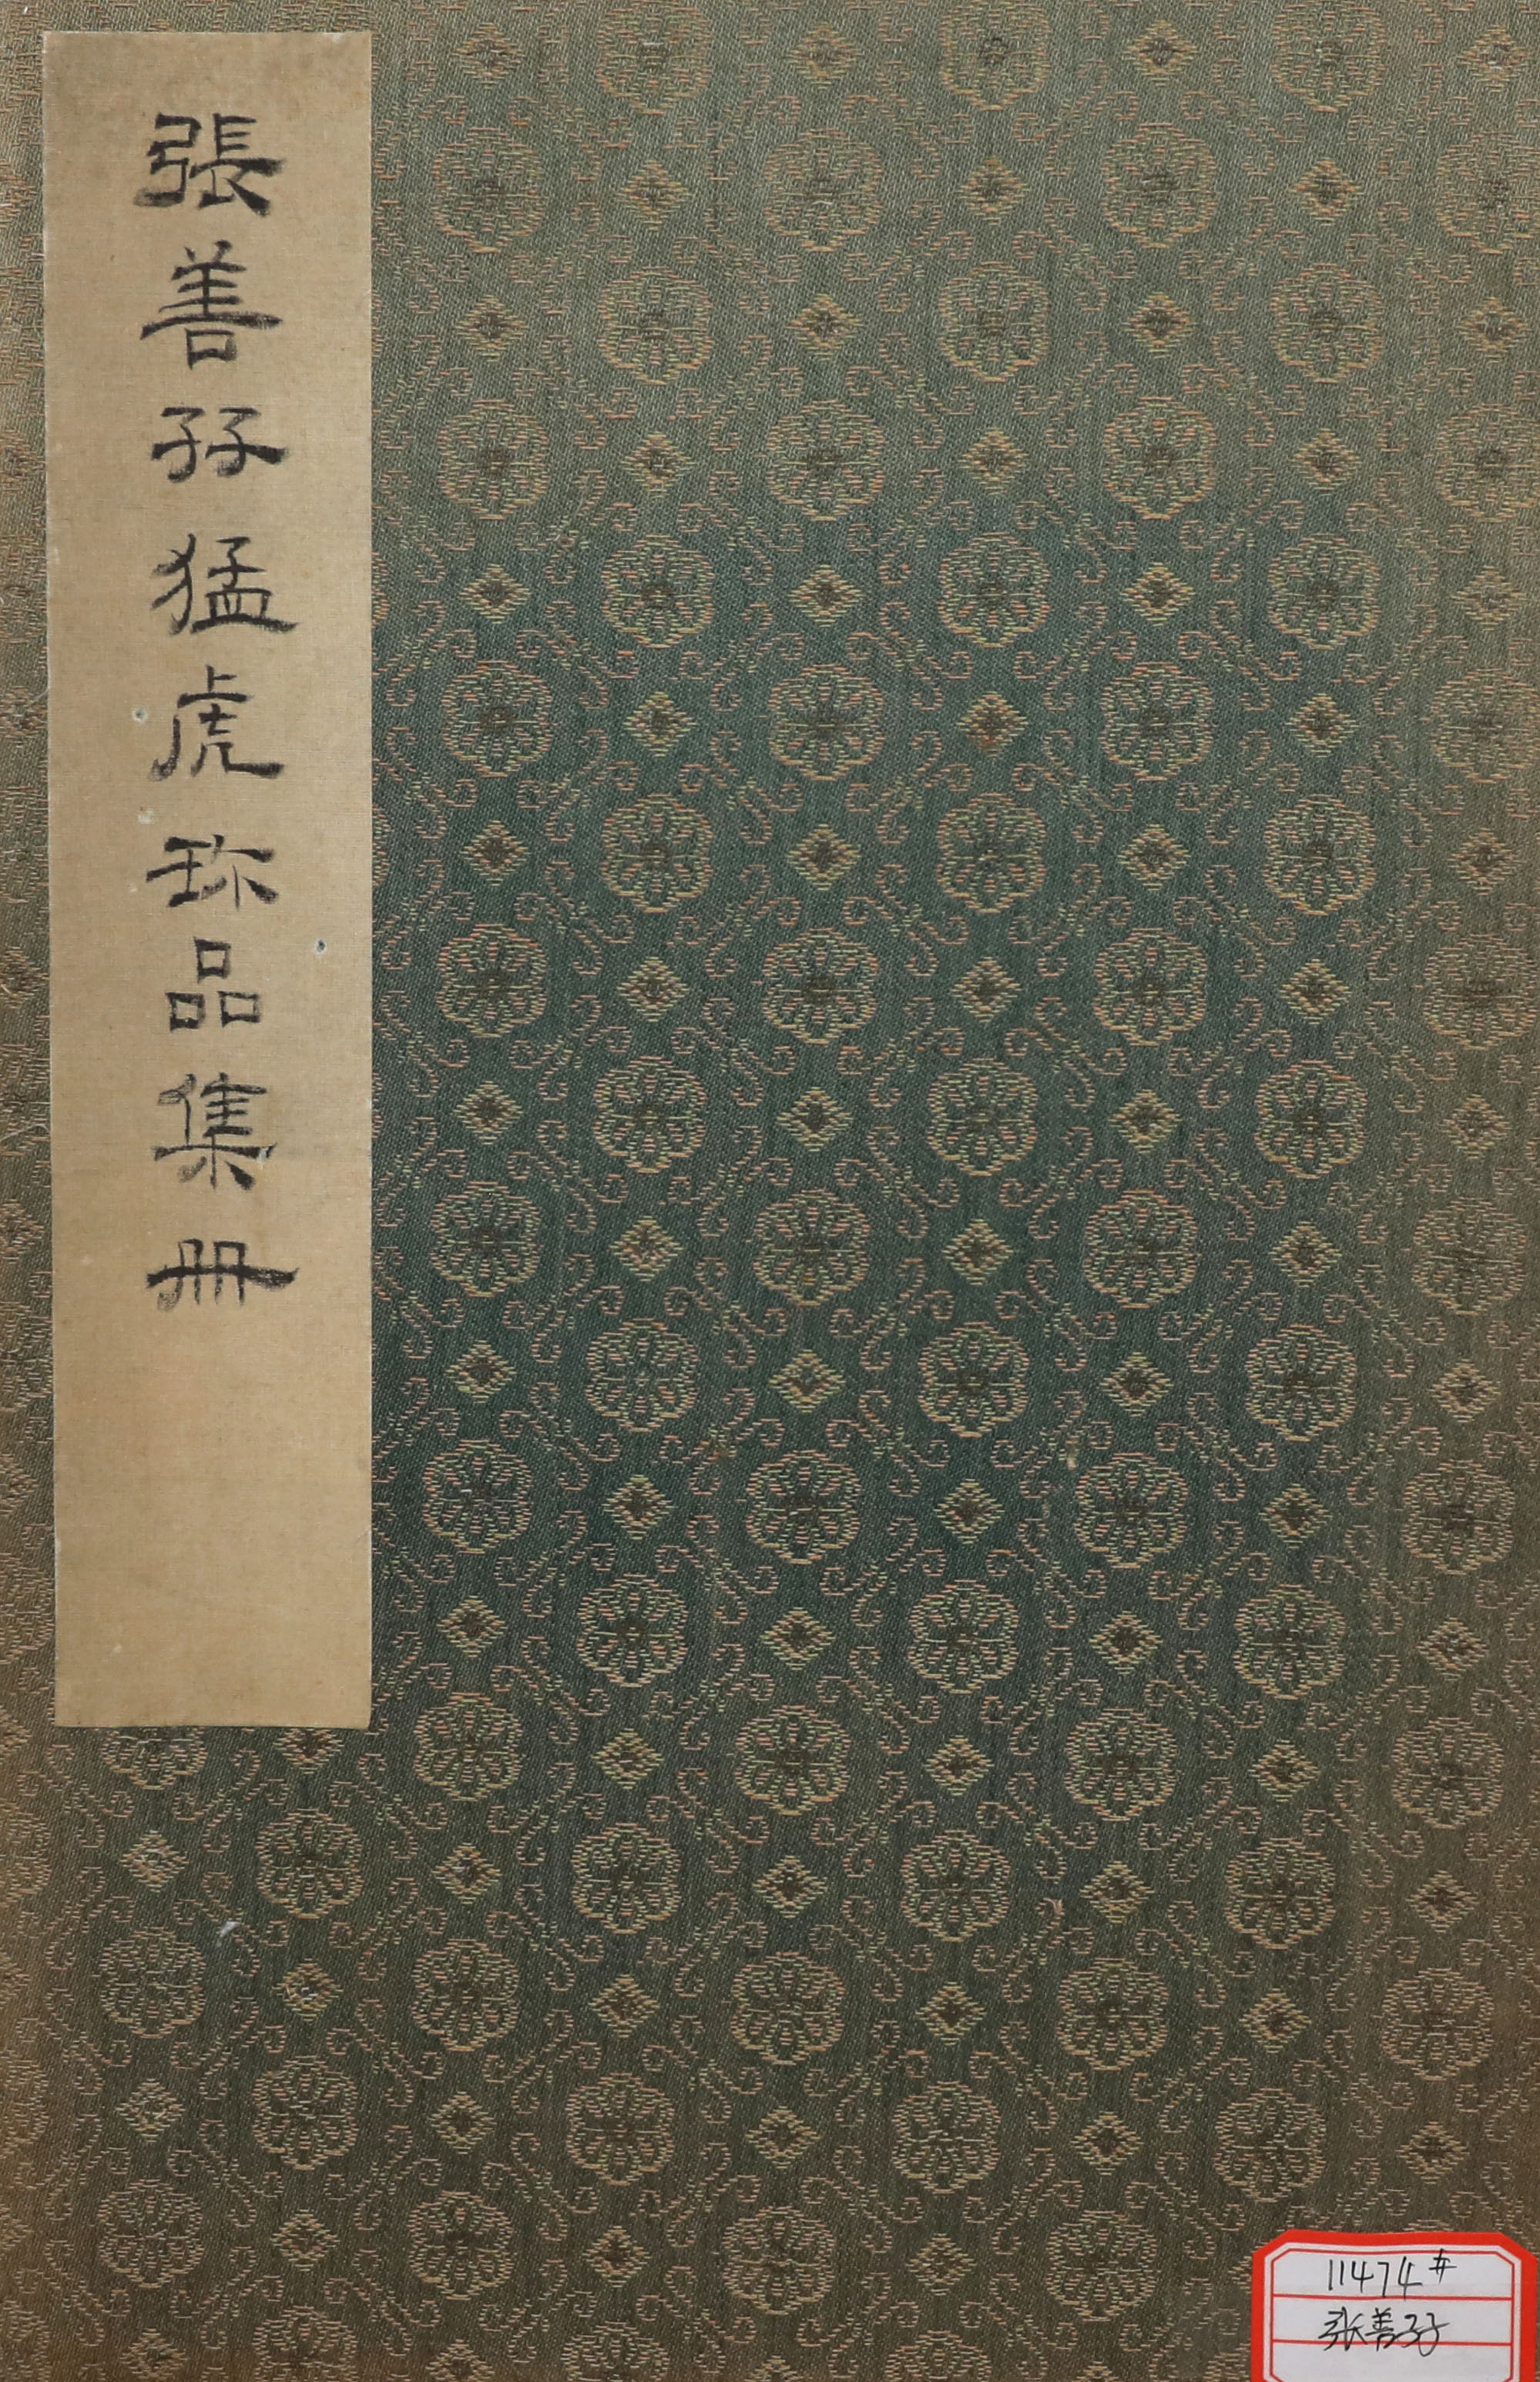 張善孖猛虎珎品集册
11474#
张善孖